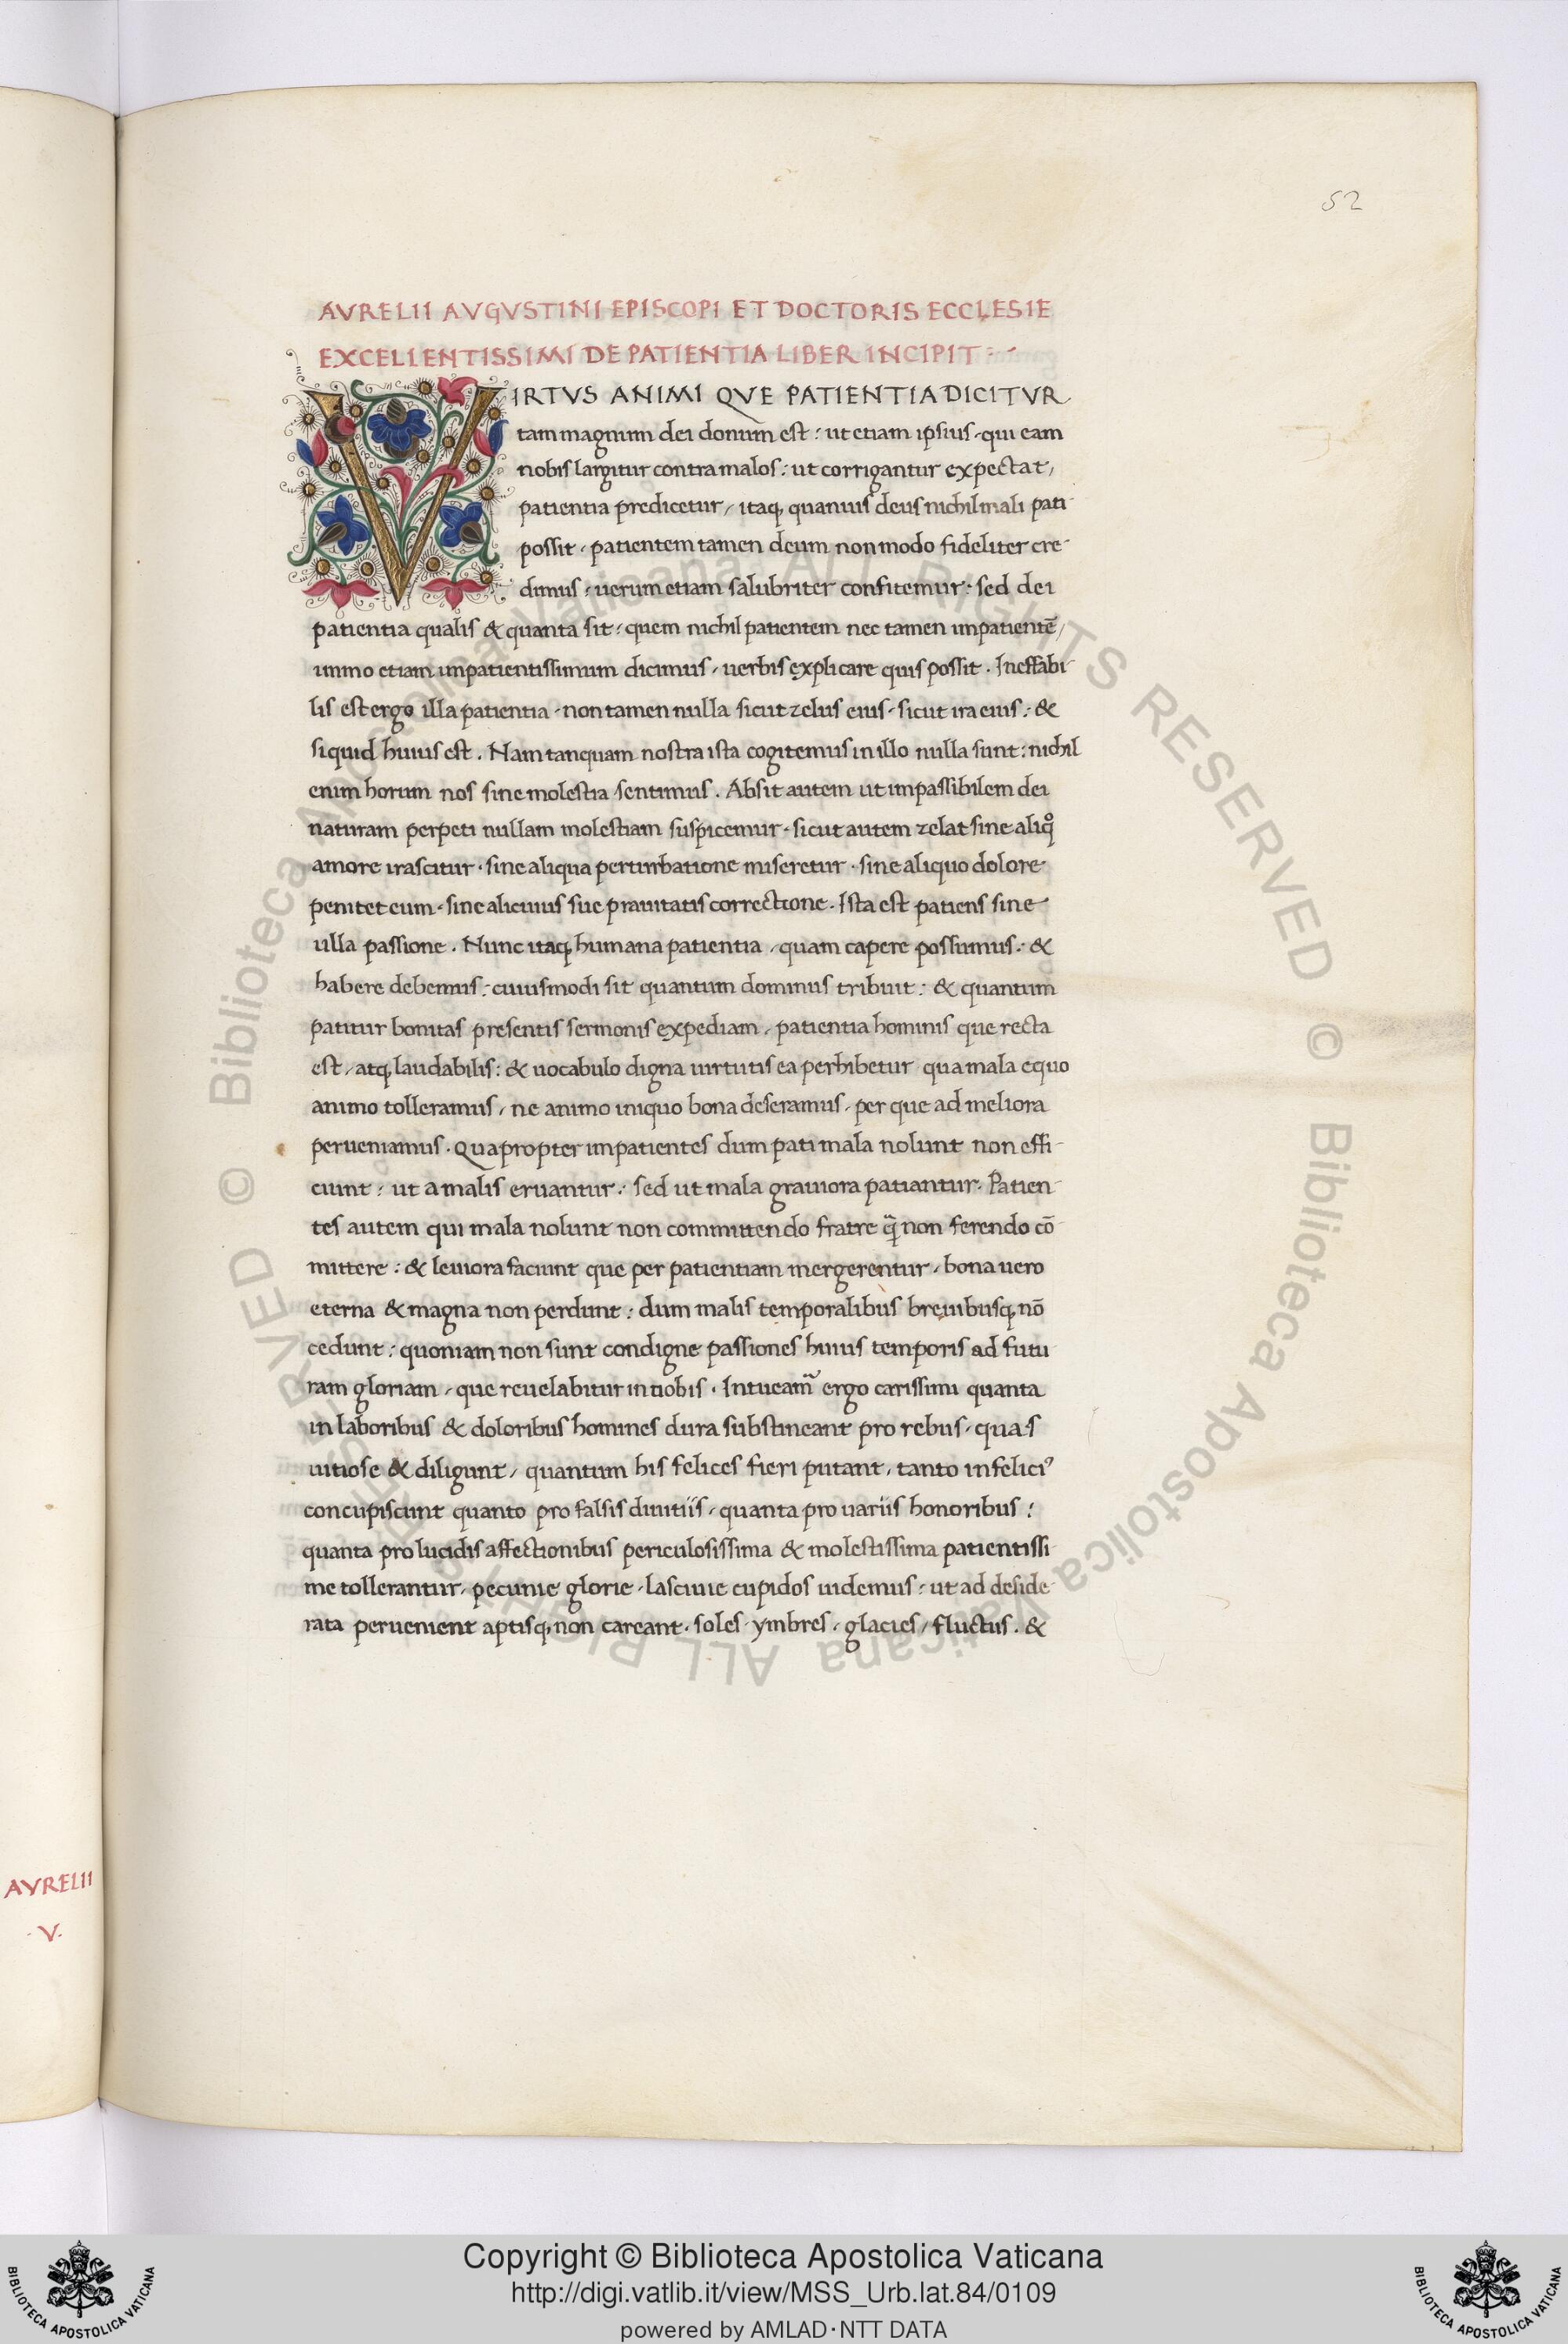 52
AVRELII AVGVSTINI EPISCOPI ET DOCTORIS ECCLESIE
EXCELLENTISSIMI DE PATIENTIA LIBER INCIPIT
VIRTVS ANIMI QVE PATIENTIA DICITVR
tam magnum dei donum est: ut etiam ipsius, qui eam
nobis largitur contra malos: ut corrigantur expectat,
patientia predicetur, itaq, quamuis deus nichil mali pati
possit, patientem tamen deum non modo fideliter cre-
dimus, uerum etiam salubriter confitemur: sed dei
patientia qualis & quanta sit: quem nichil patientem nec tamen impatientē,
immo etiam impatientissimum dicimus, uerbis explicare quis possit. Ineffabi-
lis est ergo illa patientia, non tamen nulla sicut zelus eius, sicut ira eius: &
siquid huius est. Nam tanquam nostra ista cogitemus in illo nulla sunt: nichil
enim horum nos sine molestia sentimus. Absit autem ut impassibilem dei
naturam perpeti nullam molestiam suspicemur, sicut autem zelat sine aliqͦ
amore irascitur, sine aliqua perturbatione miseretur, sine aliquo dolore
penitet eum, sine alicuius sue prauitatis correctione. Ista est patiens sine
ulla passione. Nunc itaq, humana patientia, quam capere possumus: &
habere debemus: cuiusmodi sit quantum dominus tribuit: & quantum
patitur bonitas presentis sermonis expediam, patientia hominis que recta
est, atq, laudabilis: & uocabulo digna uirtutis ea perhibetur qua mala equo
animo tolleramus, ne animo iniquo bona deseramus, per que ad meliora
perueniamus. Quapropter impatientes dum pati mala nolunt non effi-
ciunt: ut a malis eruantur: sed ut mala grauiora patiantur. Patien-
tes autem qui mala nolunt non committendo fratre q̄ non ferendo cō-
mittere: & leuiora faciunt que per patientiam mergerentur, bona uero
eterna & magna non perdunt: dum malis temporalibus breuibusq, nō
cedunt: quoniam non sunt condigne passiones huius temporis ad futu
ram gloriam, que reuelabitur in nobis. Intueam̃ ergo carissimi quanta
in laboribus & doloribus homines dura substineant pro rebus, quas
uitiose & diligunt, quantum his felices fieri putant, tanto infeliciꝰ
concupiscunt quanto pro falsis diuitiis, quanta pro uariis honoribus:
quanta pro lucidis affectionibus periculosissima & molestissima patientissi-
me tollerantur, pecunie glorie, lasciuie cupidos uidemus: ut ad deside-
rata peruenient aptisq, non careant, soles, ymbres, glacies, fluctus. &
AVRELII
·V·
© Biblioteca Apostolica Vaticana ALL RIGHTS RESERVED © Biblioteca Apostolica Vaticana ALL RIGHTS RESERVED
BIBLIOTECA APOSTOLICA VATICANA
Copyright © Biblioteca Apostolica Vaticana
http://digi.vatlib.it/view/MSS_Urb.lat.84/0109
powered by AMLAD·NTT DATA
BIBLIOTECA APOSTOLICA VATICANA